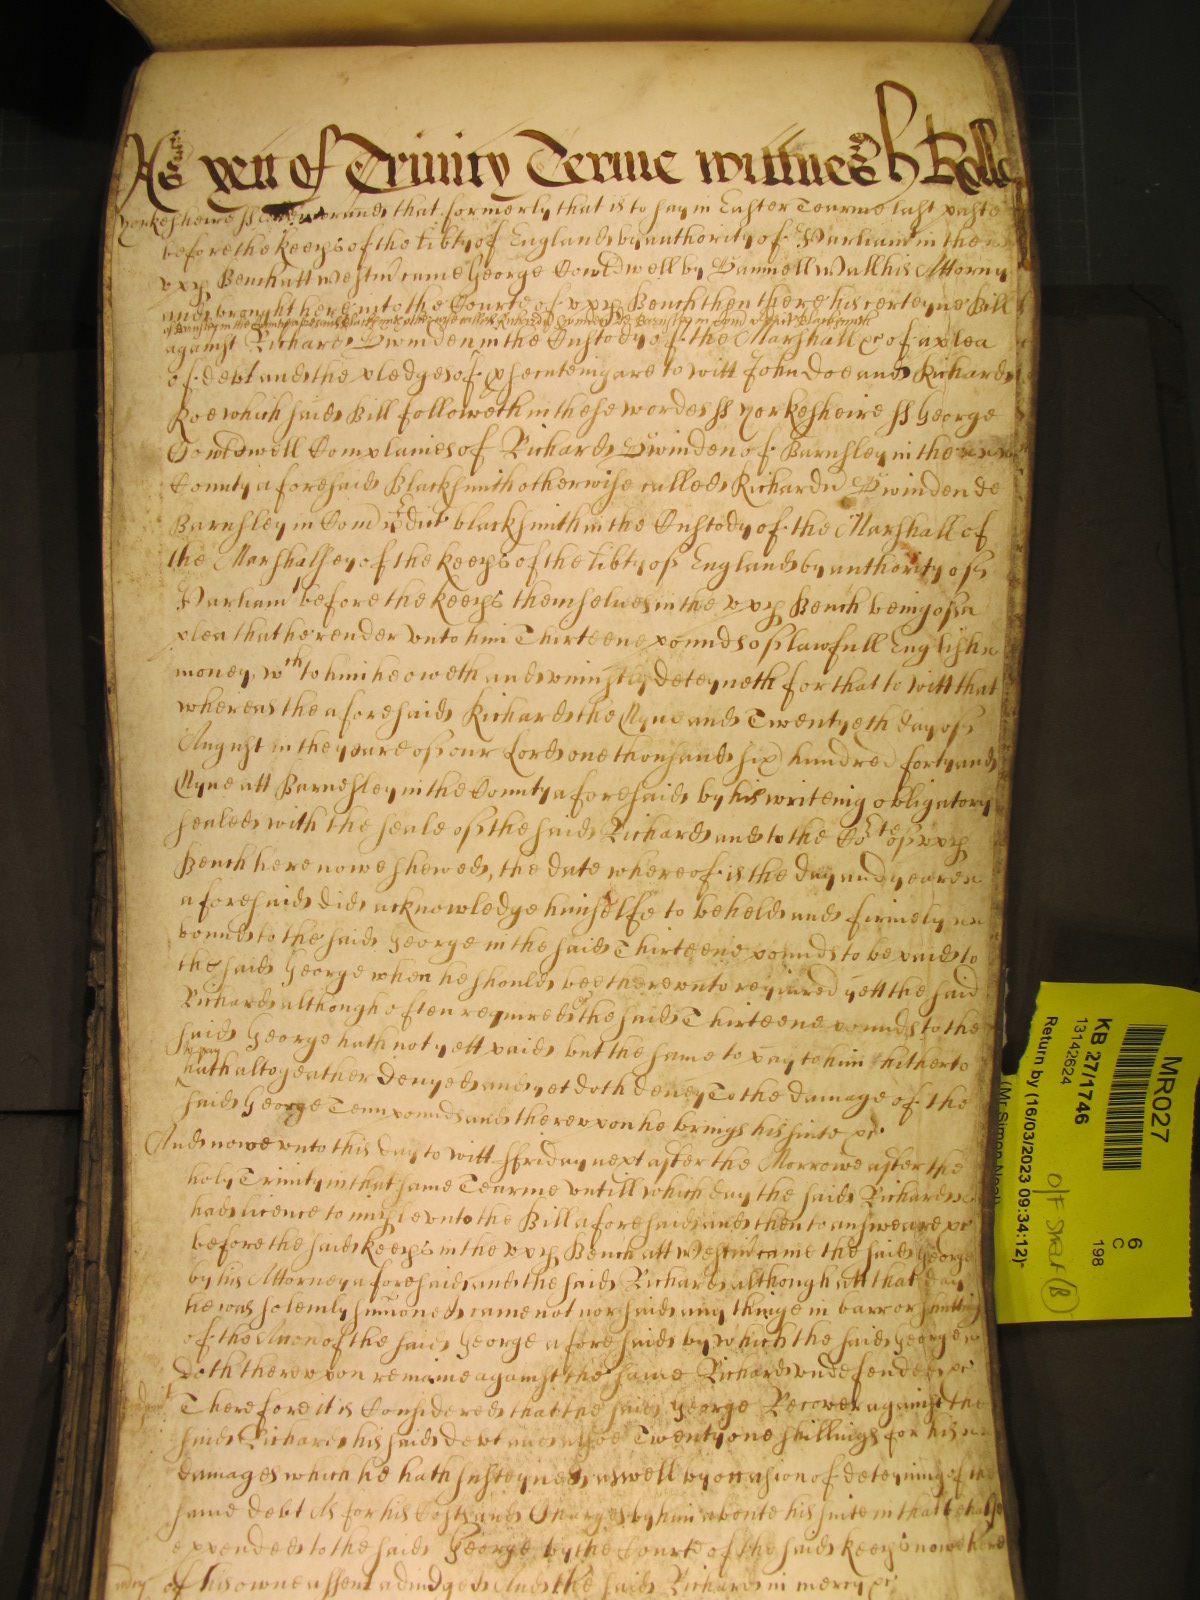 As yett of Trinity Terme wittnes H Rolle
Yorkesheire ss rand that formerly that is to say in Easter Tearme last paste
before the keeprs of the libty of England by authority of Parliamt in the
uppr Bench att Westmr came George Cowldwell by Daniell Wall his Attorny
and brought here into the Courte of uppr Bench then there his certeyne Bill
of Barnsley in the blacksmith otherwise called Richard Swinden de Barnsley in Com blacksmith
against Richard Swinden in the Custody of the Marshall &c of a plea
of debt and the pledges of psecuteing are to witt John Doe and Richard
Roe which said Bill followeth in these wordes ss Yorkesheire ss George
Cowldwell Complaines of Richard Swinden of Barnsley in the
County aforesaid Blacksmith otherwise called Richardu Swinden de
Barnsley in Com pdict blacksmith in the Custody of the Marshall of
the Marshalsey of the keeprs of the libty of England by authority of
Parliamt before the keeprs themselues in the uppr Bench being of a
plea that he render unto him Thirteene pounds of lawfull English
money wch to him he oweth and uniustly deteyneth for that to witt that
whereas the aforesaid Richard the Nyne and Twentyeth day of
August in the yeare of our Lord one thousand six hundred forty and
Nyne att Barnesley in the County aforesaid by his writeing obligatory
sealed with the seale of the said Richard and to the Cort of uppr
Bench here nowe shewed, the date whereof is the day and yeare
aforesaid did acknowledge himselfe to be held and firmely
bound to the said George in the said Thirteene pounds to be paid to
the said George when he should bee thereunto required yett the said
Richard although often required the said Thirteene pounds to the
said George hath not yett paid but the same to pay to him hitherto
hath altogeather denyed and yet doth deney To the damage of the
said George Tenn pounds and thereupon he brings his suite &c
And nowe unto this day to witt ffriday next after the Morrowe after the
holy Trinity in that same Tearme untill which day the said Richard
had licence to imple unto the Bill aforesaid and then to answeare &c
before the said keeprs in the uppr Bench att Westmr came the said George
by his Attorney aforesaid and the said Richard although att that day
he was solemly summoned came not nor said any thinge in barr or
of the Accon of the said George aforesaid by which the said George
doth thereupon remaine against the same Richard undefended &c
Therefore it is Considered that the said George Recover against the
said Richard his said debt and alsoe Twenty one shillings for his
damages which he hath susteyned aswell by occasion of deteyning of the
same debt As for his Costs and Charges by him aboute his suite in that behalfe
expended to the said George by the Courte of the said keeprs nowe here
of his owne assent adiudged And the said Richard in mercy &c
MR027
KB 27/1746
13142624
Return by (16/03/2023 09:34:12)-
6
C
198